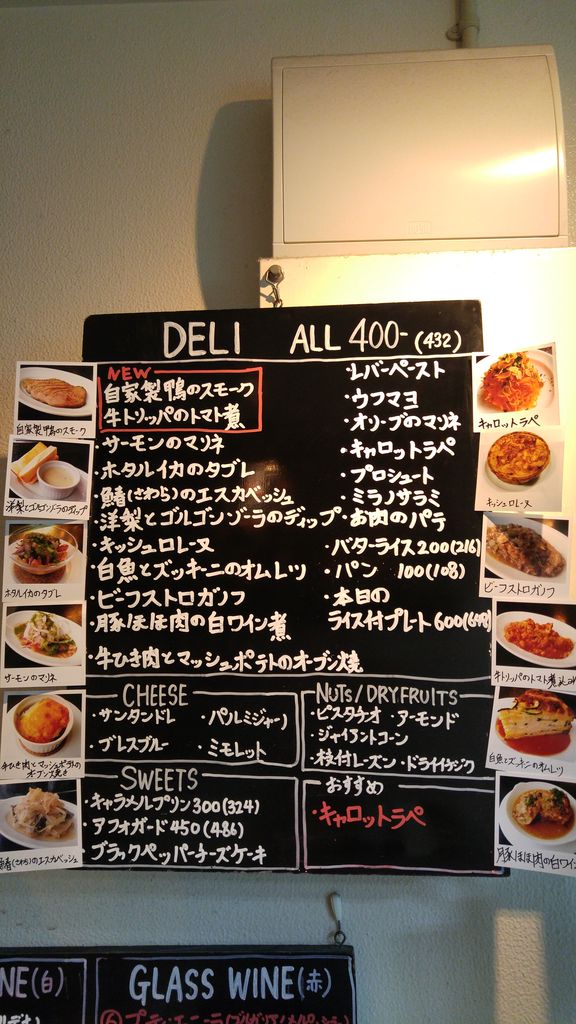 DELI ALL 400- (432)
NEW
自家製鴨のスモーク
牛トリッパのトマト煮
・サーモンのマリネ
・ホタルイカのタブレ
・鰆(さわら)のエスカベッシュ
・洋梨とゴルゴンゾーラのディップ
・キッシュロレーヌ
・白魚とズッキーニのオムレツ
・ビーフストロガノフ
・豚ほほ肉の白ワイン煮
・牛ひき肉とマッシュポテトのオーブン焼
・レバーペースト
・ウフマヨ
・オリーブのマリネ
・キャロットラペ
・プロシュート
・ミラノサラミ
・お肉のパテ
・バターライス200(216)
・パン 100(108)
・本日の
ライス付プレート600(648)
CHEESE
・サンタンドレ ・パルミジャーノ
・ブレスブルー ・ミモレット
NUTS/DRYFRUITS
・ピスタチオ ・アーモンド
・ジャイアントコーン
・枝付レーズン ・ドライイチジク
SWEETS
・キャラメルプリン300(324)
・アフォガード450(486)
・ブラックペッパーチーズケーキ
おすすめ
・キャロットラペ
自家製鴨のスモーク
洋梨とゴルゴンゾーラのディップ
ホタルイカのタブレ
サーモンのマリネ
牛ひき肉とマッシュポテトの
オーブン焼き
鰆(さわら)のエスカベッシュ
キャロットラペ
キッシュロレーヌ
ビーフストロガノフ
牛トリッパのトマト煮込み
白魚とズッキーニのオムレツ
豚ほほ肉の白ワイン
NE(白)
GLASS WINE(赤)